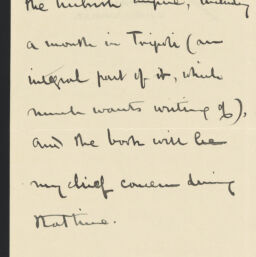 the Turkish Empire, including
a month in Tripoli (an
integral part of it, which
much wants writing of),
and the book will be
my chief concern during
that time.